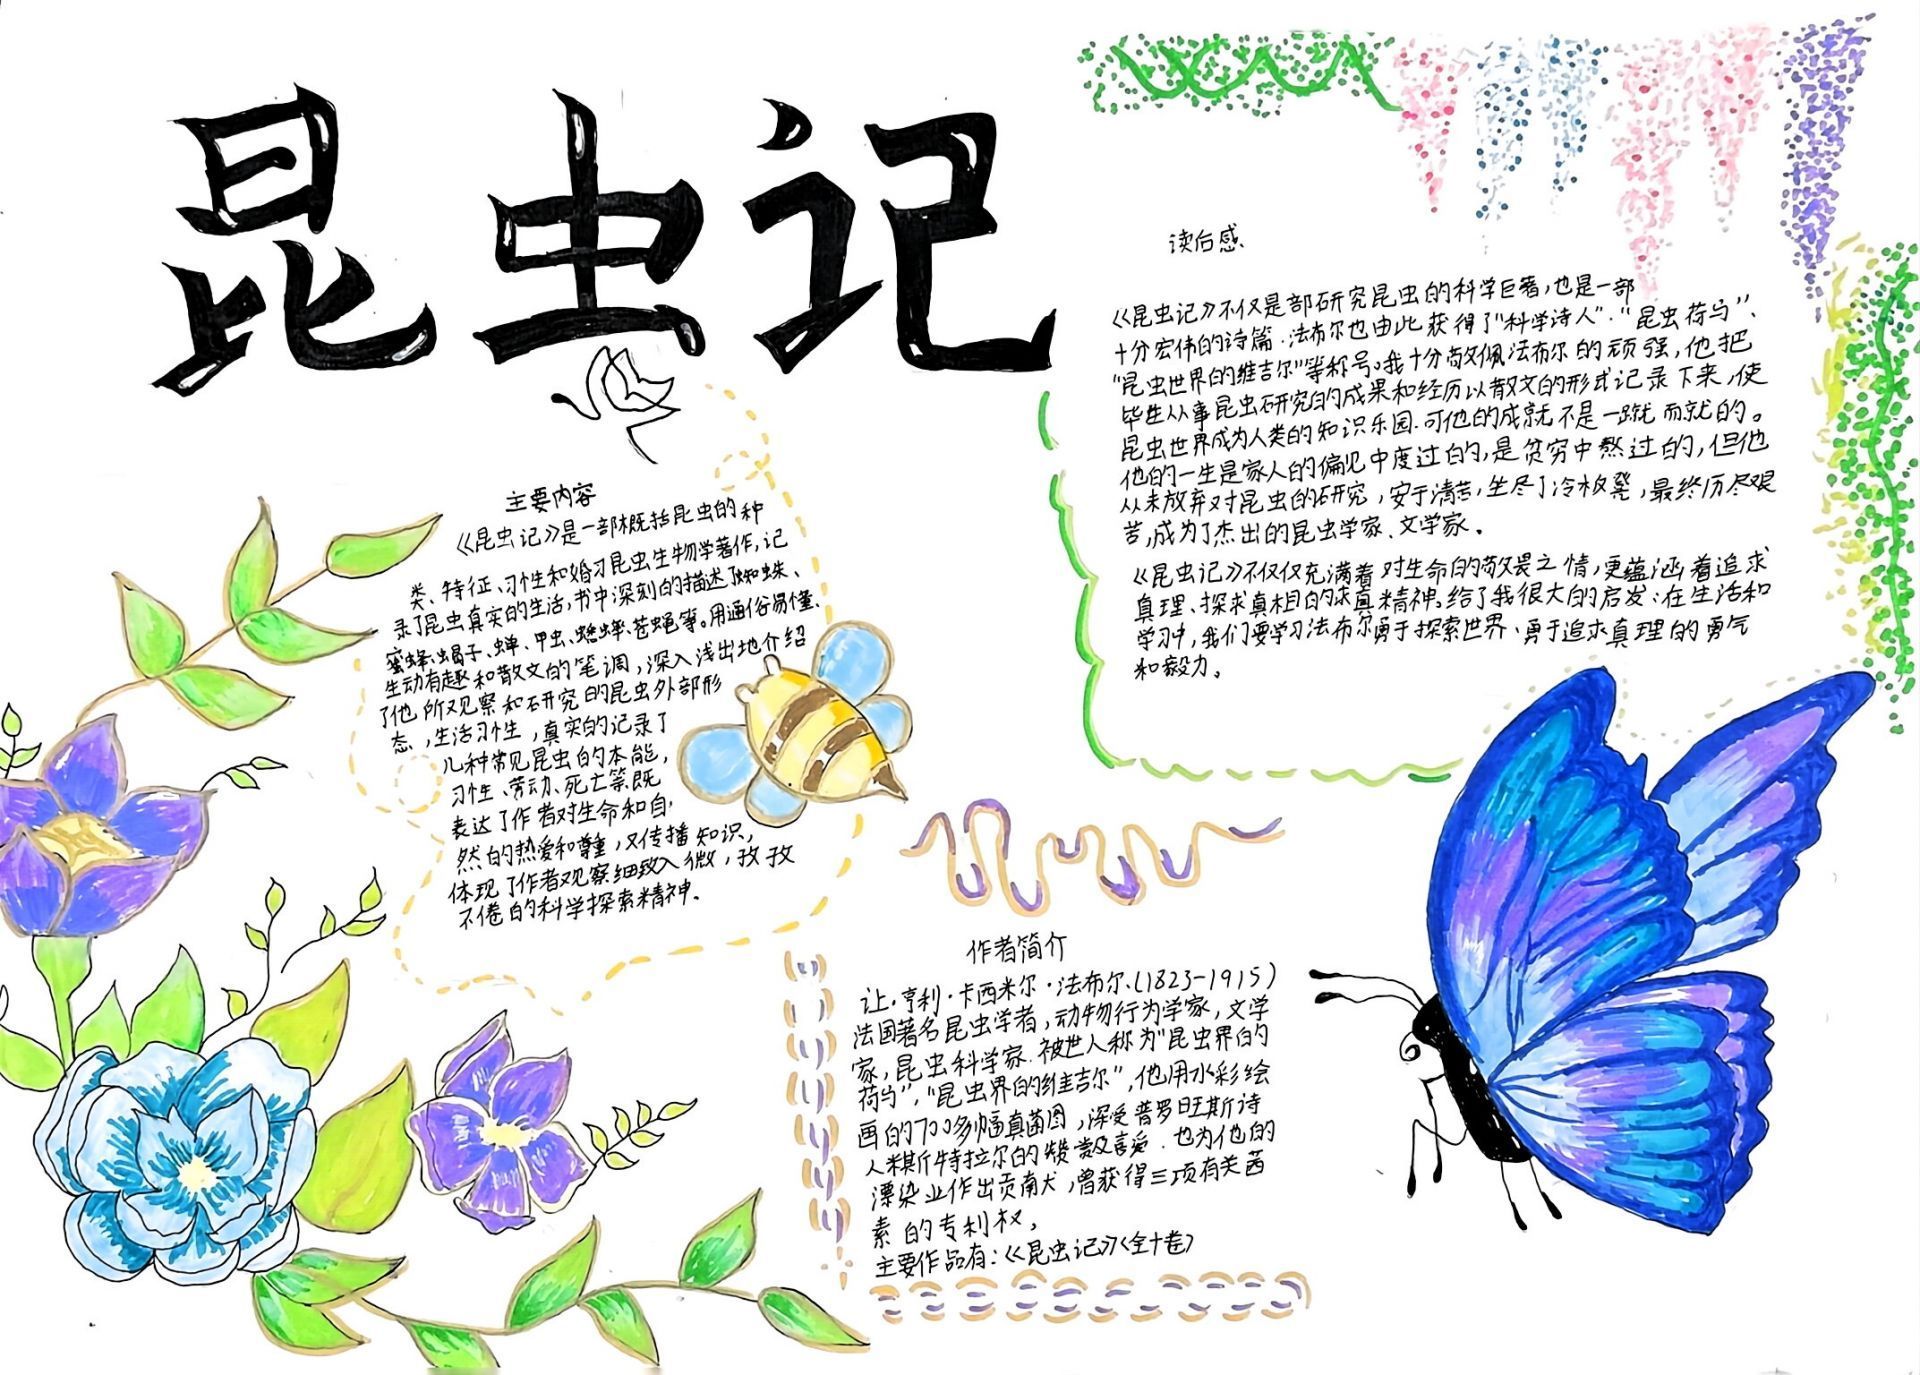 昆虫记
主要内容
《昆虫记》是一部概括昆虫的种
类、特征、习性和婚习昆虫生物学著作,记
录了昆虫真实的生活,书中深刻的描述了蜘蛛、
蜜蜂、蝎子、蝉、甲虫、蟋蟀、苍蝇等。用通俗易懂、
生动有趣和散文的笔调,深入浅出地介绍
了他所观察和研究的昆虫外部形
态,生活习性,真实的记录了
几种常见昆虫的本能,
习性、劳动、死亡等.既
表达了作者对生命和自
然的热爱和尊重,又传播知识,
体现了作者观察细致入微,孜孜
不倦的科学探索精神.
读后感、
《昆虫记》不仅是部研究昆虫的科学巨著,也是一部
十分宏伟的诗篇.法布尔也由此获得了"科学诗人"."昆虫荷马"、
"昆虫世界的维吉尔"等称号。我十分敬佩法布尔的顽强,他把
毕生从事昆虫研究的成果和经历以散文的形式记录下来,使
昆虫世界成为人类的知识乐园.可他的成就不是一蹴而就的。
他的一生是家人的偏见中度过的,是贫穷中熬过的,但他
从未放弃对昆虫的研究,安于清苦,坐尽了冷板凳,最终历尽艰
苦,成为了杰出的昆虫学家、文学家。
《昆虫记》不仅仅充满着对生命的敬畏之情,更蕴涵着追求
真理、探求真相的求真精神。给了我很大的启发:在生活和
学习中,我们要学习法布尔勇于探索世界、勇于追求真理的勇气
和毅力。
作者简介
让·亨利·卡西米尔·法布尔.(1823-1915)
法国著名昆虫学者,动物行为学家,文学
家,昆虫科学家.被世人称为"昆虫界的
荷马","昆虫界的维吉尔",他用水彩绘
画的700多幅真菌图,深受普罗旺斯诗
人米斯特拉尔的赞赏及喜爱.也为他的
漂染业作出贡献,曾获得三项有关茜
素的专利权,
主要作品有:《昆虫记》〈全十卷〉